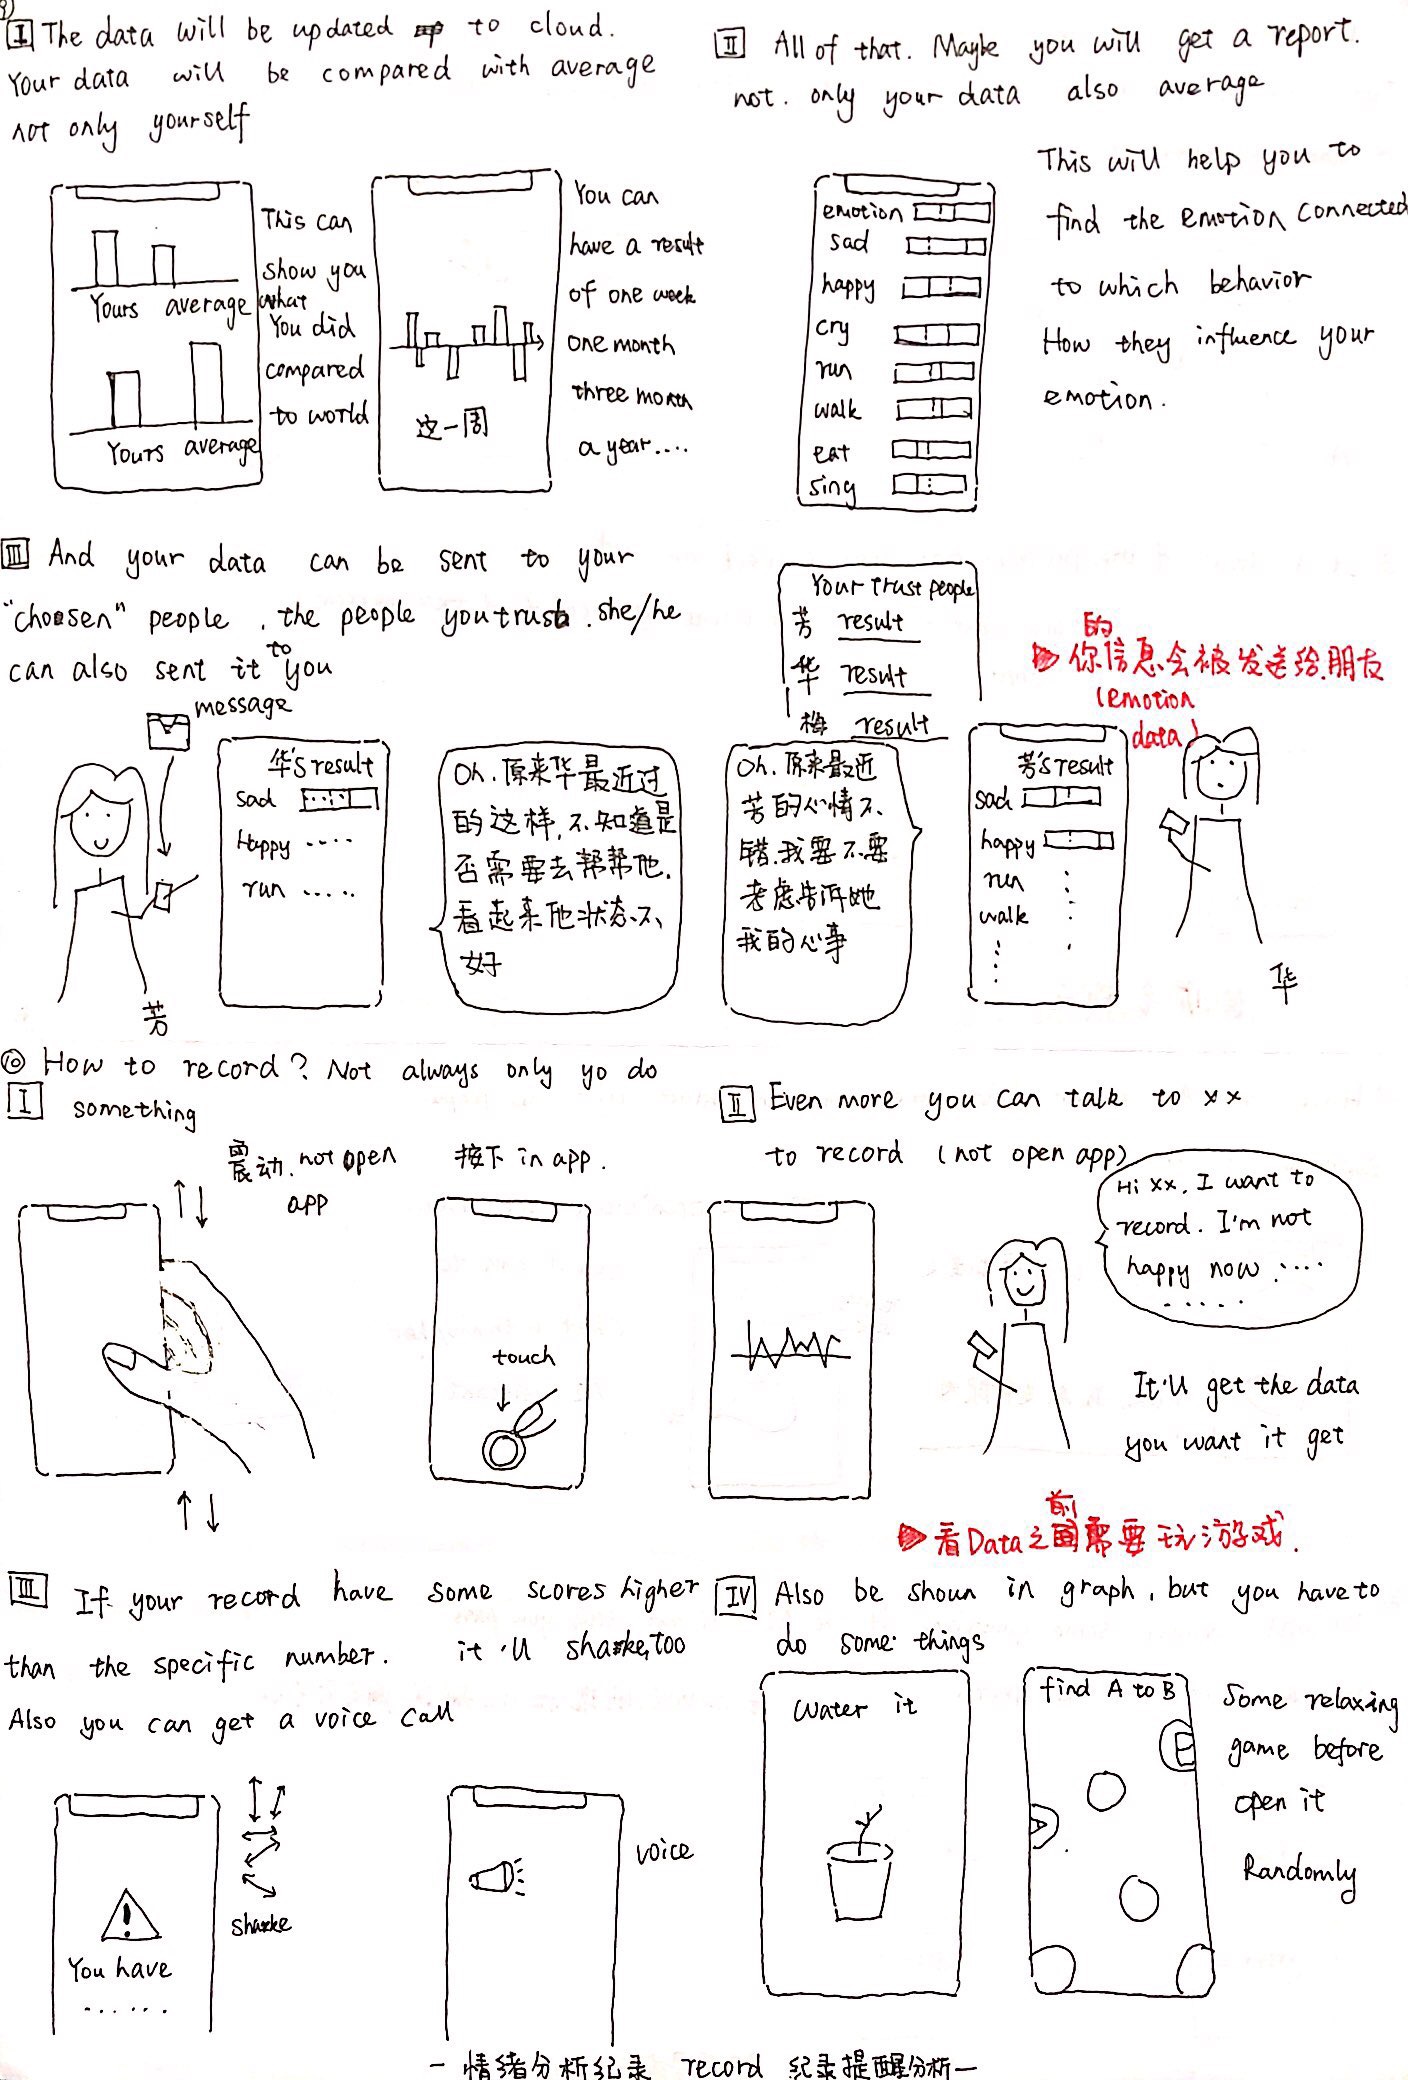 9)
I The data will be updated to cloud.
Your data will be compared with average
not only yourself
Yours average
Yours average
This can
show you
what
You did
compared
to world
这一周
You can
have a result
of one week
one month
three month
a year....
II All of that. Maybe you will get a report.
not. only your data also average
emotion
sad
happy
cry
run
walk
eat
sing
This will help you to
find the emotion connected
to which behavior
How they influence your
emotion.
III And your data can be sent to your
"choosen" people, the people you trust. she/he
can also sent it to you
message
芳
华's result
sad
Happy ....
run .....
Oh.原来华最近过
的这样,不知道是
否需要去帮帮他.
看起来他状态不
好
Your trust people
芳 result
华 result
梅 result
Oh.原来最近
芳的心情不
错.我要不要
考虑告诉她
我的心事
芳's result
sad
happy
run
walk
华
的
你信息会被发送给朋友
(emotion
data)
⑩ How to record? Not always only yo do
I something
震动. not open
app
接下 in app.
touch
II Even more you can talk to xx
to record (not open app)
Hi xx, I want to
record. I'm not
happy now .....
.....
It'll get the data
you want it get
前
看Data之需要玩游戏.
III If your record have some scores higher
than the specific number. it'll shake, too
Also you can get a voice call
You have
......
shake
voice
IV Also be shown in graph, but you have to
do some things
Water it
find A to B
A
B
Some relaxing
game before
open it
Randomly
- 情绪分析纪录 record 纪录提醒分析 -